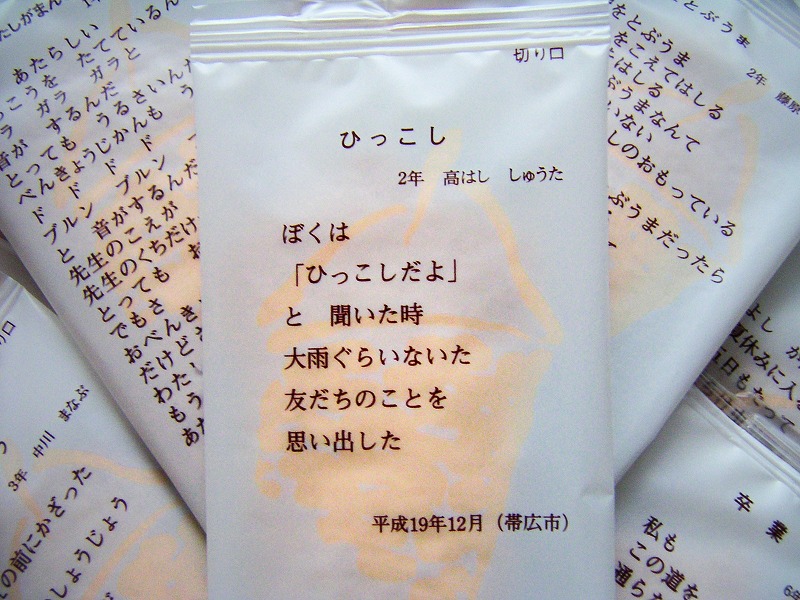 切り口
ひっこし
2年 高はし しゅうた
ぼくは
「ひっこしだよ」
と 聞いた時
大雨ぐらいないた
友だちのことを
思い出した
平成19年12月（帯広市）
あたらしい
こうを たてている
ガラ ガラと
音が するんだ
とっても うるさいんだ
べんきょうじかんも
ド ド ド
ブルン ブルン
と 音がするんだ
先生のこえが
先生のくちだけ
とっても
でもさ
おべんき
だけど
わたし
もう
とぶうま
2年 藤原
をとぶうま
をこえてはしる
はしる
うまなんて
いない
しのおもっている
ぶうまだったら
切り口
3年 中川 まなぶ
の前にかざった
しょうじょう
夏休みに入
日もたって
卒業
6年
私も
この道を
通らな